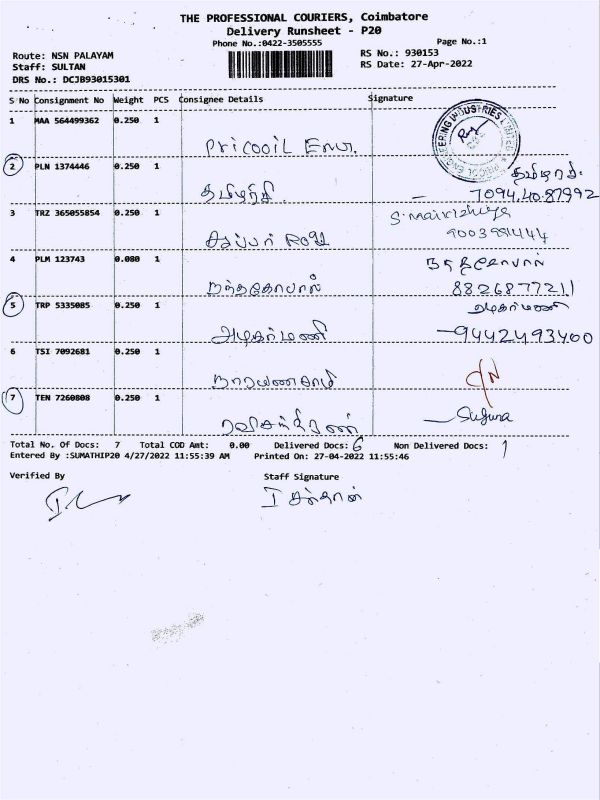 THE PROFESSIONAL COURIERS, Coimbatore
Delivery Runsheet - P20
Phone No.:0422-3505555 Page No.:1
Route: NSN PALAYAM RS No.: 930153
Staff: SULTAN RS Date: 27-Apr-2022
DRS No.: DCJB93015301
S No Consignment No Weight PCS Consignee Details Signature
1 MAA 564499362 0.250 1
2 PLN 1374446 0.250 1 தமிழரசி. தமிழரசி
3 TRZ 365055854 0.250 1 9003981444
4 PLM 123743 0.080 1 நந்தகோபால் நந்தகோபால்
8826877211
5 TRP 5335085 0.250 1 அழகர்மணி அழகர்மணி
-9442493400
6 TSI 7092681 0.250 1 நாராயணசாமி
7 TEN 7260808 0.250 1 ரவிசந்திரன் Suguna
Total No. Of Docs: 7 Total COD Amt: 0.00 Delivered Docs: 6 Non Delivered Docs: 1
Entered By :SUMATHIP20 4/27/2022 11:55:39 AM Printed On: 27-04-2022 11:55:46
Verified By Staff Signature